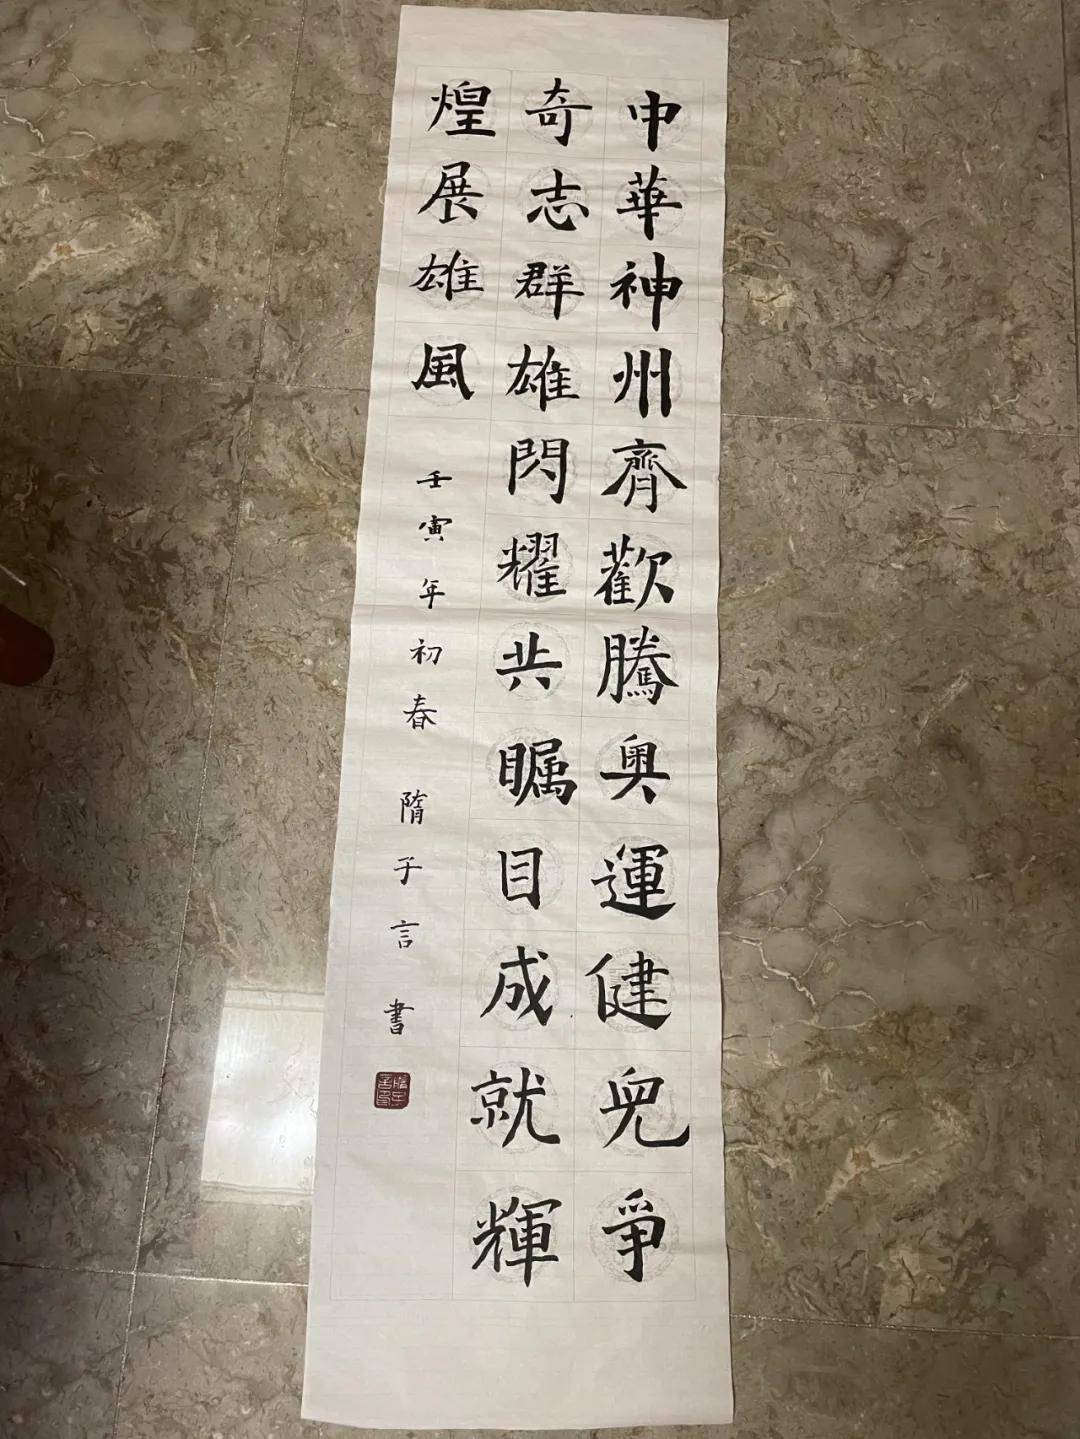 中華神州齊歡騰奥運健兒爭
奇志群雄閃耀共瞩目成就輝
煌展雄風
壬寅年初春 隋子言書